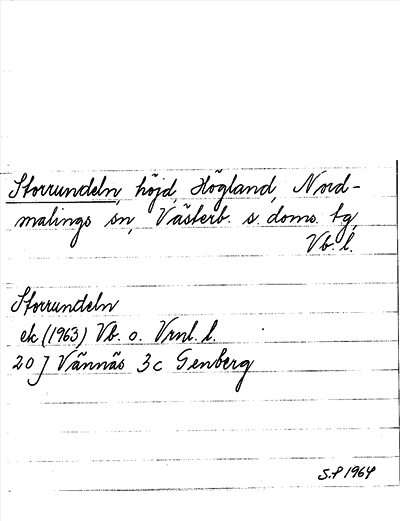 Storrundeln, höjd, Högland, Nord-
malings sn, Västerb. s. doms. tg,
Vb. l.
Storrundeln
ek (1963) Vb. o. Vrnl. l.
20 J Vännäs 3c Genberg
S.P 1964